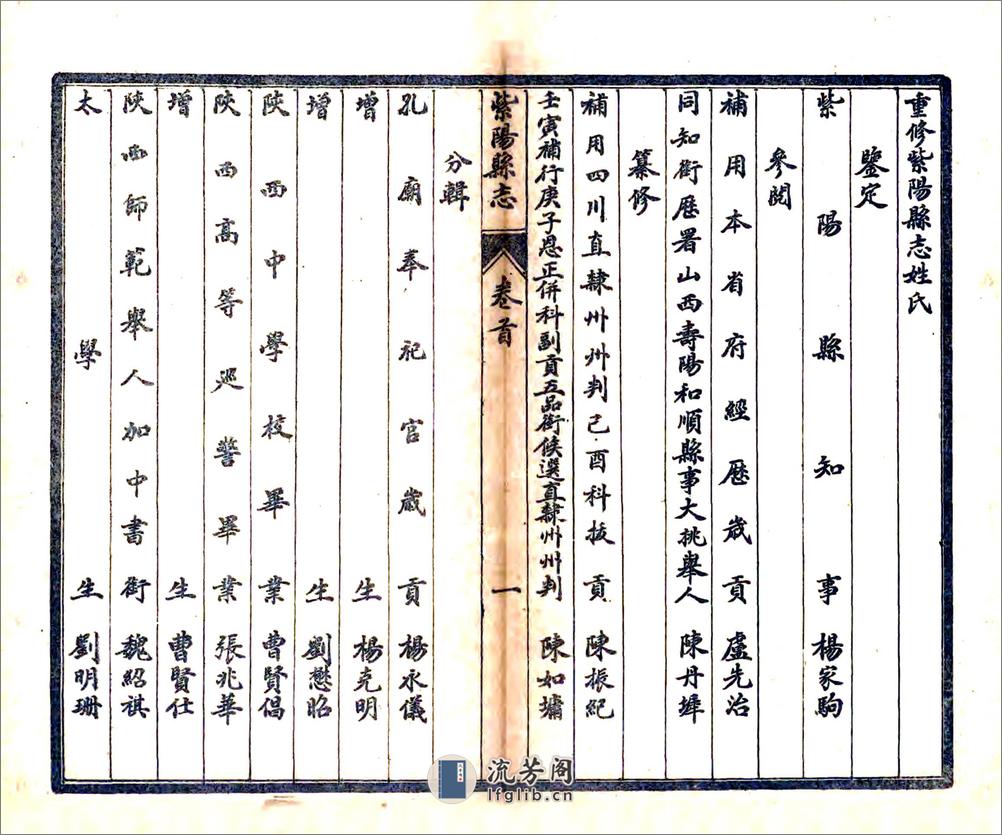 重修紫陽縣志姓氏
鑒定
紫陽縣知事楊家駒
參閱
補用本省府經歷歲貢盧先治
同知銜歷署山西壽陽和順縣事大挑舉人陳丹墀
纂修
補用四川直隸州州判己酉科拔貢陳振紀
壬寅補行庚子恩正併科副貢五品銜候選直隸州州判陳如墉
紫陽縣志 卷首 一
分輯
孔廟奉祀官歲貢楊永儀
增生楊克明
增生劉懋昭
陝西中學校畢業曹賢倡
陝西高等巡警畢業張兆華
增生曹賢仕
陝西師範舉人加中書銜魏紹祺
太學生劉明珊
流芳阁
lfglib.cn